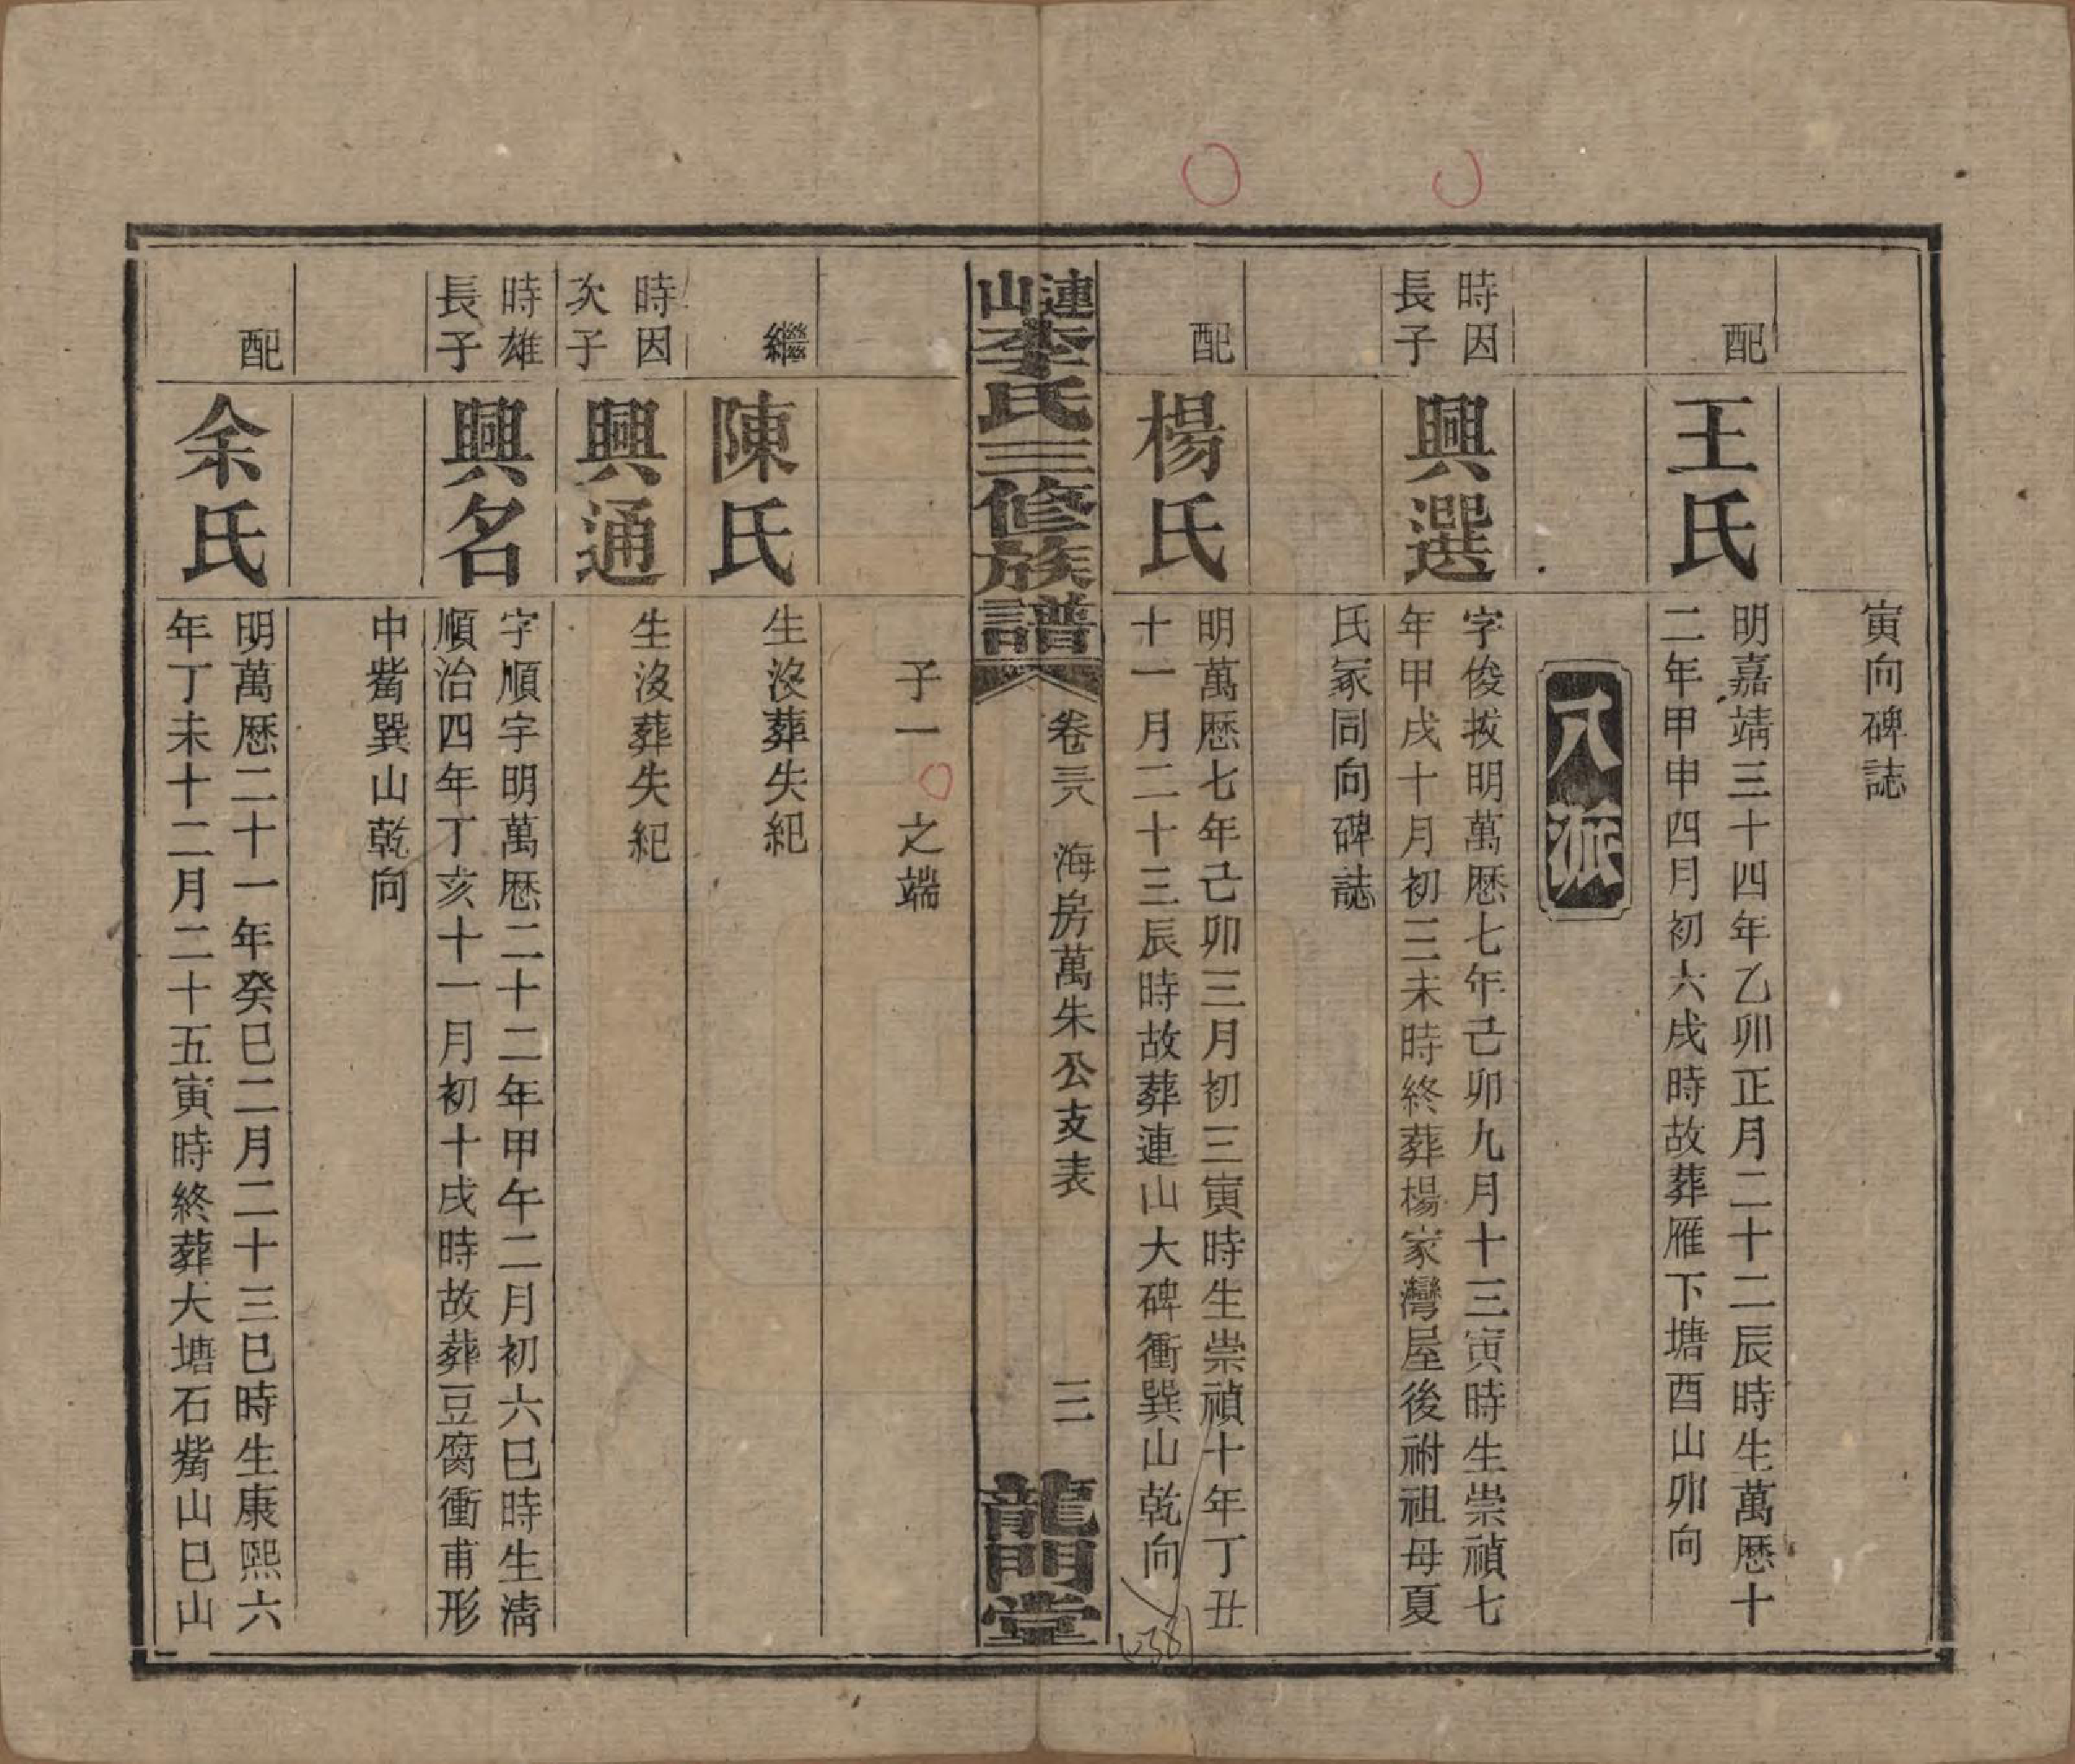 寅向碑誌
配
王氏
明嘉靖三十四年乙卯正月二十二辰時生萬歷十
二年甲申四月初六戌時故葬雁下塘酉山卯向
八派
時因
長子
興選
字俊拔明萬歷七年己卯九月十三寅時生崇禎七
年甲戌十月初三未時終葬楊家灣屋後祔祖母夏
氏冢同向碑誌
配
楊氏
明萬歷七年己卯三月初三寅時生崇禎十年丁丑
十一月二十三辰時故葬連山大碑衝巽山乾向
連山李氏三修族譜
卷三八
海房萬朱公支表
三
龍門堂
子一 之端
繼
陳氏
生沒葬失紀
時因
次子
興通
生沒葬失紀
時雄
長子
興名
字順宇明萬歷二十二年甲午二月初六巳時生淸
順治四年丁亥十一月初十戌時故葬豆腐衝甫形
中觜巽山乾向
配
余氏
明萬歷二十一年癸巳二月二十三巳時生康熙六
年丁未十二月二十五寅時終葬大塘石觜山巳山